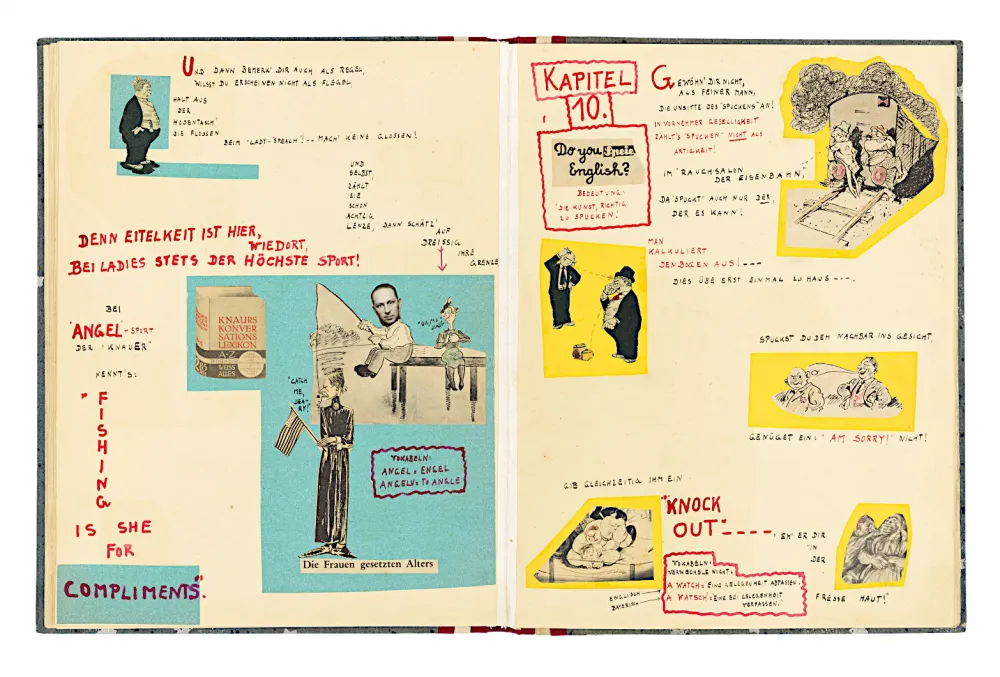 UND DANN BEMERK' DIR AUCH ALS REGEL,
WILLST DU ERSCHEINEN NICHT ALS FLEGEL,
HALT AUS
DER
HOSENTASCH'
DIE FLOSSEN
BEIM "LADY-SPEACH"!-- MACH' KEINE GLOSSEN!
UND
SELBST,
ZÄHLT
SIE
SCHON
ACHTZIG
LENZE, DANN SCHÄTZ'
AUF
DREISSIG
IHRE
GRENZE
DENN EITELKEIT IST HIER,
WIE DORT,
BEI LADIES STETS DER HÖCHSTE SPORT!
BEI
"ANGEL"-SPORT
DER "KNAUER"
KENNT'S:
"FISHING
IS SHE
FOR
COMPLIMENTS".
KNAURS
KONVER
SATIONS
LEXIKON
A-Z
WEISS
ALLES
"CATCH
ME,
DEAR-
RY!"
VOKABELN:
ANGEL = ENGEL
ANGELN = TO ANGLE
Die Frauen gesetzten Alters
KAPITEL
10.
Do you
English?
BEDEUTUNG:
"DIE KUNST, RICHTIG
ZU SPUCKEN!
GEWÖHN' DIR NICHT,
ALS FEINER MANN,
DIE UNSITTE DES "SPUCKENS" AN!
IN VORNEHMER GESELLIGKEIT
ZÄHLT'S "SPUCKEN" NICHT ALS
ARTIGKEIT!
IM "RAUCHSALON
DER EISENBAHN,"
DA "SPUCKT" AUCH NUR DER,
DER ES KANN!
MAN
KALKULIERT
DEN BOGEN AUS!---
DIES ÜBE ERST EINMAL ZU HAUS ---.
SPUCKST DU DEM NACHBAR INS GESICHT,
GENÜGET EIN: "AM SORRY!" NICHT!
GIB GLEICHZEITIG IHM EIN
"KNOCK
OUT"----,
EH' ER DIR
"IN
DER
FRESSE HAUT!"
VOKABELN:
VERWECHSLE NICHT:
ENGLISCH A WATCH = EINE GELEGENHEIT ABPASSEN.
BAYERISCH A WATSCH' = EINE BEI GELEGENHEIT
VERPASSEN."